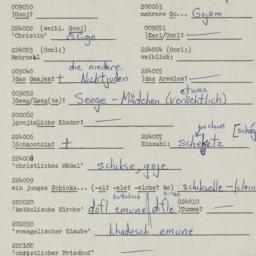 009050 200063
)Gooj? mehrere Go... Gojem
224002 (weibl. Gooj) 009051
'Christin' Goje )Eerl/Gorl? —
224003 (Gorl:) 224004 (Gorl:)
Mehrzahl weiblich:
009040 die niedere 224005
)das Gaajes? + Nichtjuden )das Areeles? —
009052 etwas
)Seeg/Seeg(te)? Seege - Mädchen (verächtlich)
200062
)goojischliche Kinder? —
224006 224007
)Schkootsim? + Einzahl: scheketz
224008
'christliches Mädel' schikse, goje
224009
ein junges Schicks... (-el? -ele? -elche? &c) schikselle - klein
200020 katholisch 224010
'katholische Kirche' dofl emune difle )Tumme? —
201030
'evangelischer Glaube' khadesch emune
200100
'christlicher Friedhof' —